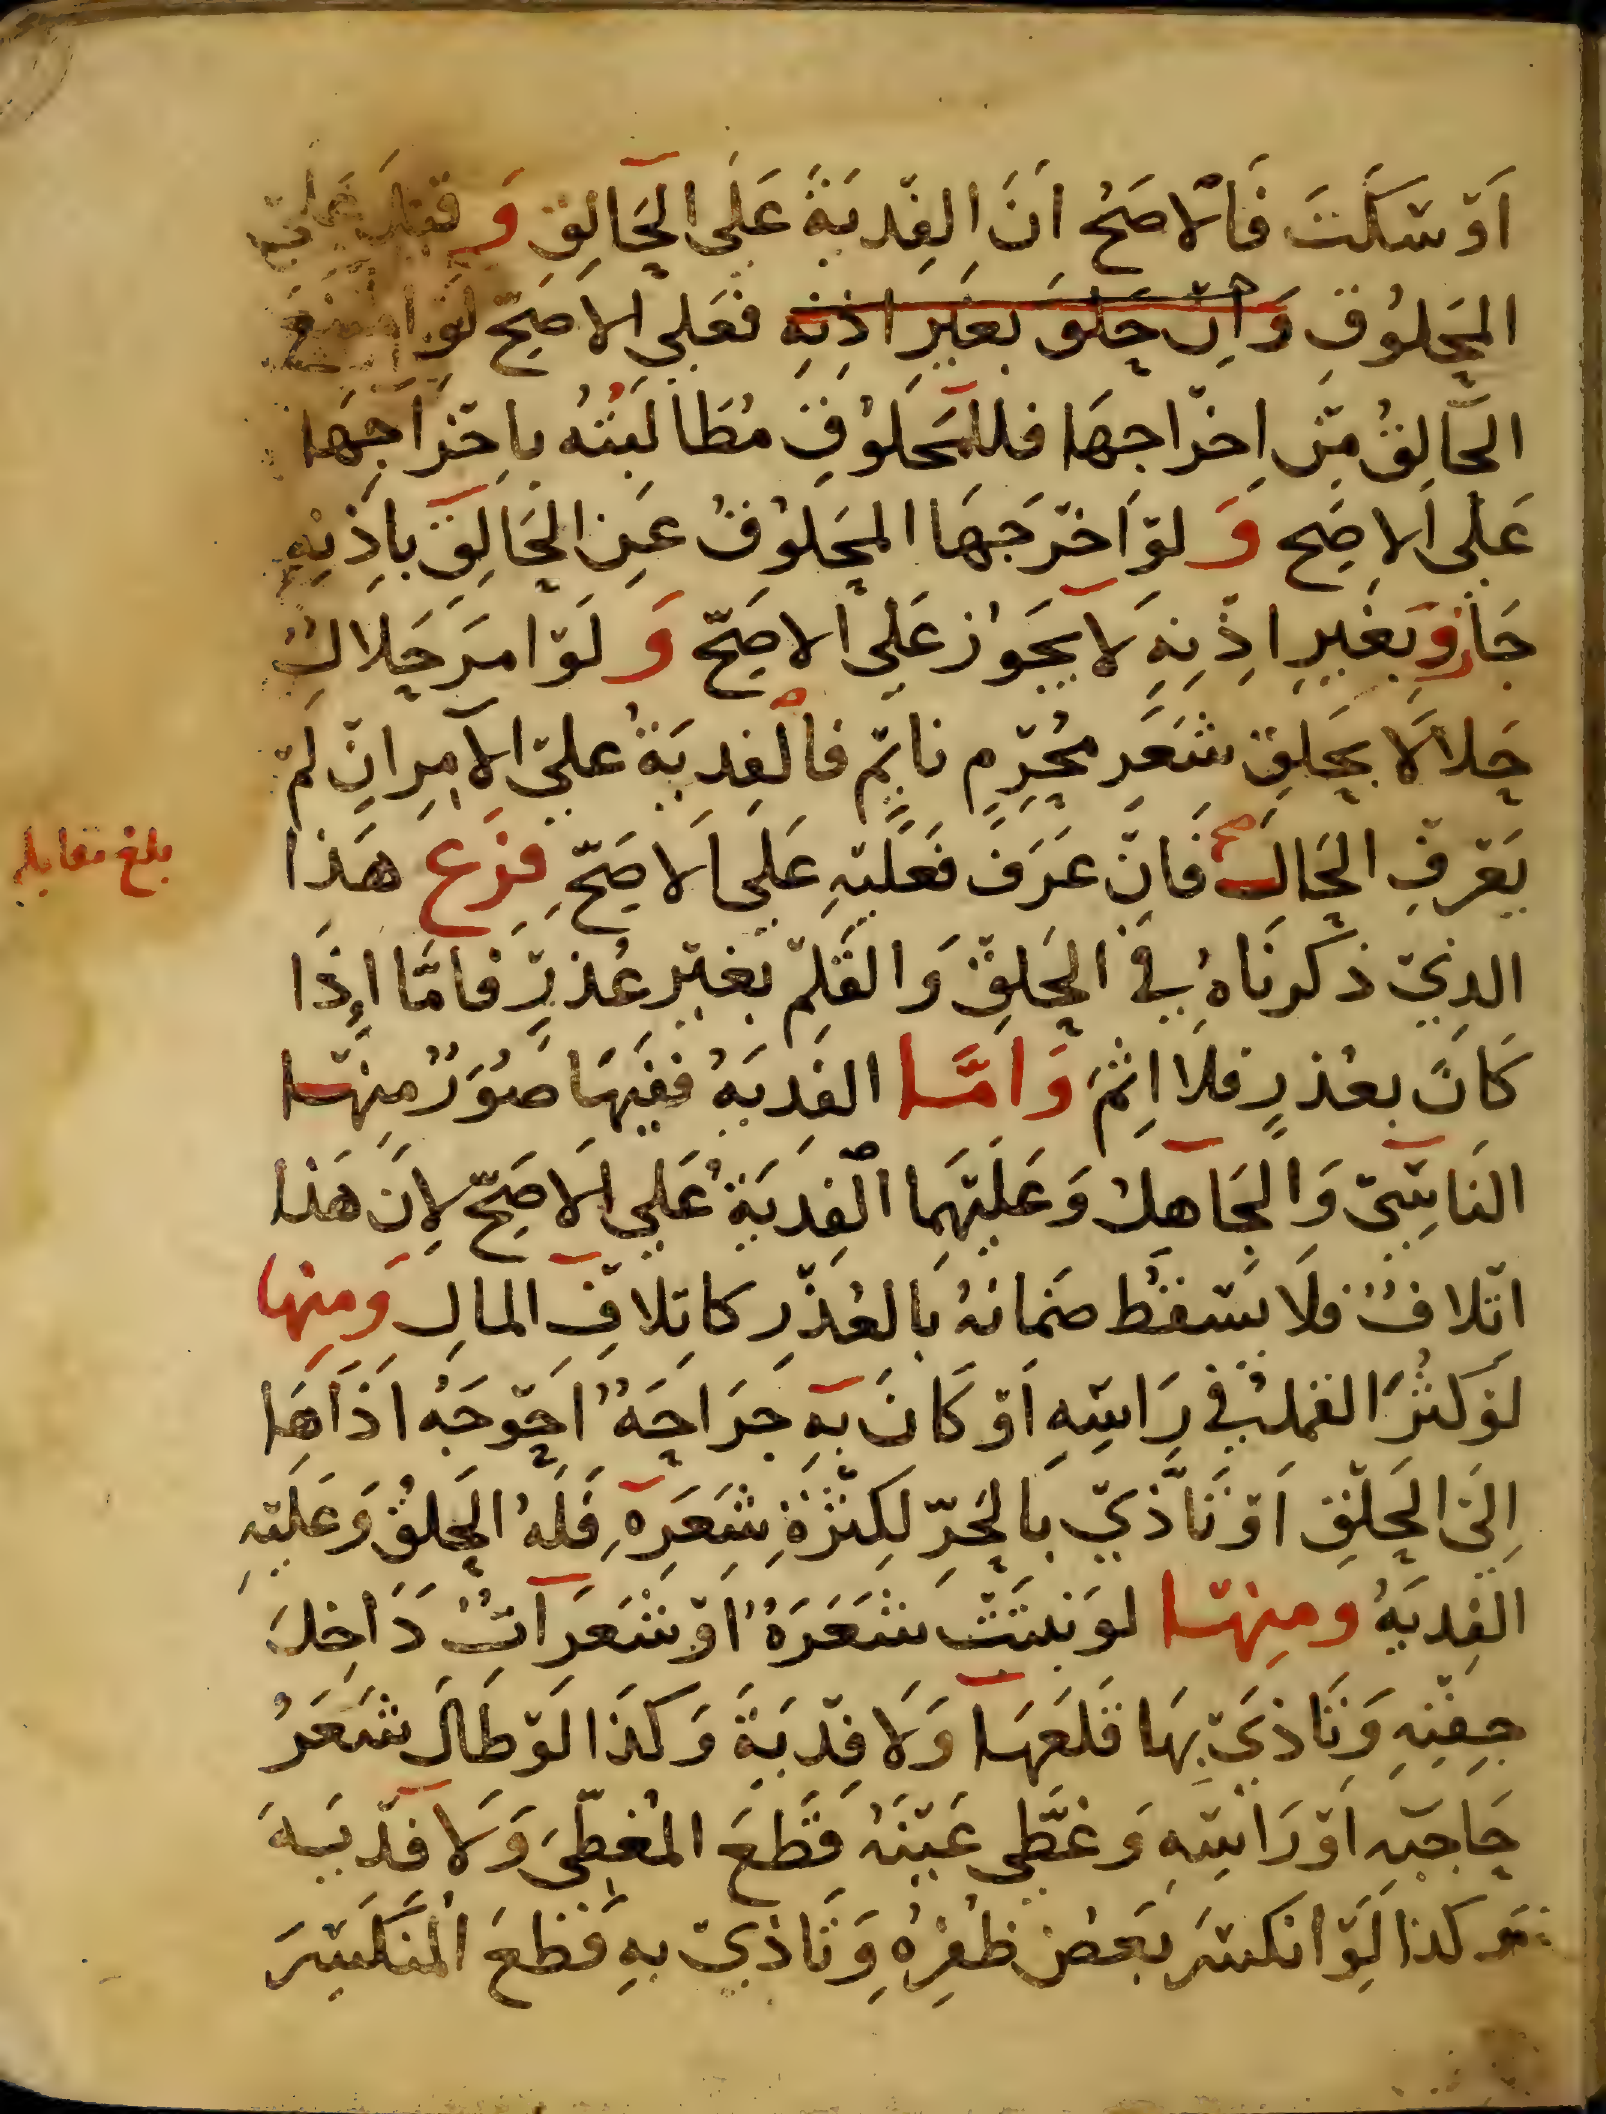 اَوْ سَكَتَ فَالْاَصَحُ اَنَ الفِدْيَةَ عَلَى الحَالِقِ وَ قيلَ عَلى
المَحلوُقِ وَاِن حَلَقَ بغَيرِ اذنِهِ فَعَلى الاَصَحِّ لَوْ امتنعَ
الحَالِقُ مِنْ اِخْرَاجهَا فللمَحلوُقِ مُطَالَبَتُهُ بِاخْرَاجِهَا
عَلَى الاَصَحِ وَ لوْ اَخْرَجَهَا المَحلوُقُ عَنِ الحَالِقِ بِاِذْنِهِ
جَازَ وَبغَيرِ اِذْنِهِ لَا يَجَوُز عَلَى الاَصَحِّ وَ لَوْ امرَ حَلالٌ
حَلالًا بحَلقِ شَعَرِ مُحْرِمٍ نايِمٍ فالفِديَةُ عَلَىْ الآمِرِ اِن لَمْ
يَعْرِفِ الحَالَ فَاِنْ عَرَفَ فَعَلَيْهِ عَلَى الاَصَحِّ فرَع هَذا
الذِيْ ذكرنَاهُ فِي الحَلْقِ وَالقَلْمِ بغَيْرِ عُذْرٍ فَامَّا اِذَا
كَانَ بعُذرٍ فلا اِثمَ وَامَّا الفِديَةُ ففِيهَا صُوَرٌ مِنهَا
النَاسِيْ وَالجَاهِلُ وَعَليْهِمَا الفِديَةُ عَلَى الاَصَحِّ لِاَنَ هَذا
اتْلافٌ فلَا يَسْقُط ضَمانهُ بالعُذْرِ كاتلافِ المالِ وَمِنها
لوَ كَثُرَ القمل فِي رَاسِهِ اَوْ كَانَ بهِ جِرَاحَةٌ اَحْوَجَهُ اَذَاهَا
اِلَى الحَلْقِ اَوْ تَاَذَّيْ بالحَرِّ لِكثْرَةِ شَعَرِهِ فَلَهُ الحَلقُ وَعَلَيْهِ
الفِديَةُ ومِنهَا لوَ نبتَتْ شَعَرَةٌ اوْ شَعَرَاتٌ دَاخِلَ
جِفْنِهِ وَتَاذيَْ بِهَا قَلَعَهَا وَلا فِدْيَةَ وَكَذا لَوْ طَالَ شَعَرُ
حَاجبهِ اَوْ رَاسِهِ وَغطَّى عَيْنَهُ قَطعَ المُغطِّى وَلا فِدْيَةَ
وَكذا لَوِْ انكسَرَ بَعضُ ظفْرِهِ وَتَاذيْ بهِ قَطعَ المُنكَسِرَ
بلغ مقابله